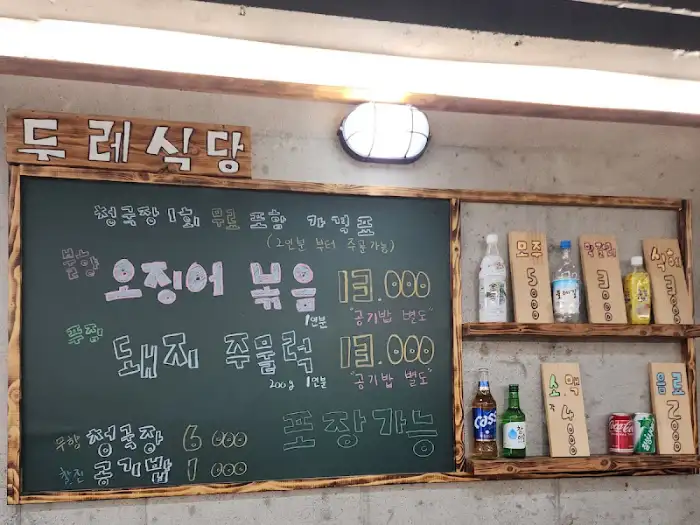 두레식당
청국장 1회 무료 포함 가격표
(2인분 부터 주문가능)
오징어 볶음 13.000
1인분 "공기밥 별도"
돼지 주물럭 13.000
200g 1인분 "공기밥 별도"
포장가능
청국장 6000
공기밥 1000
모주 5000
3000
식혜 3000
소.맥 4000
음료 2000
Cass
Coca-Cola